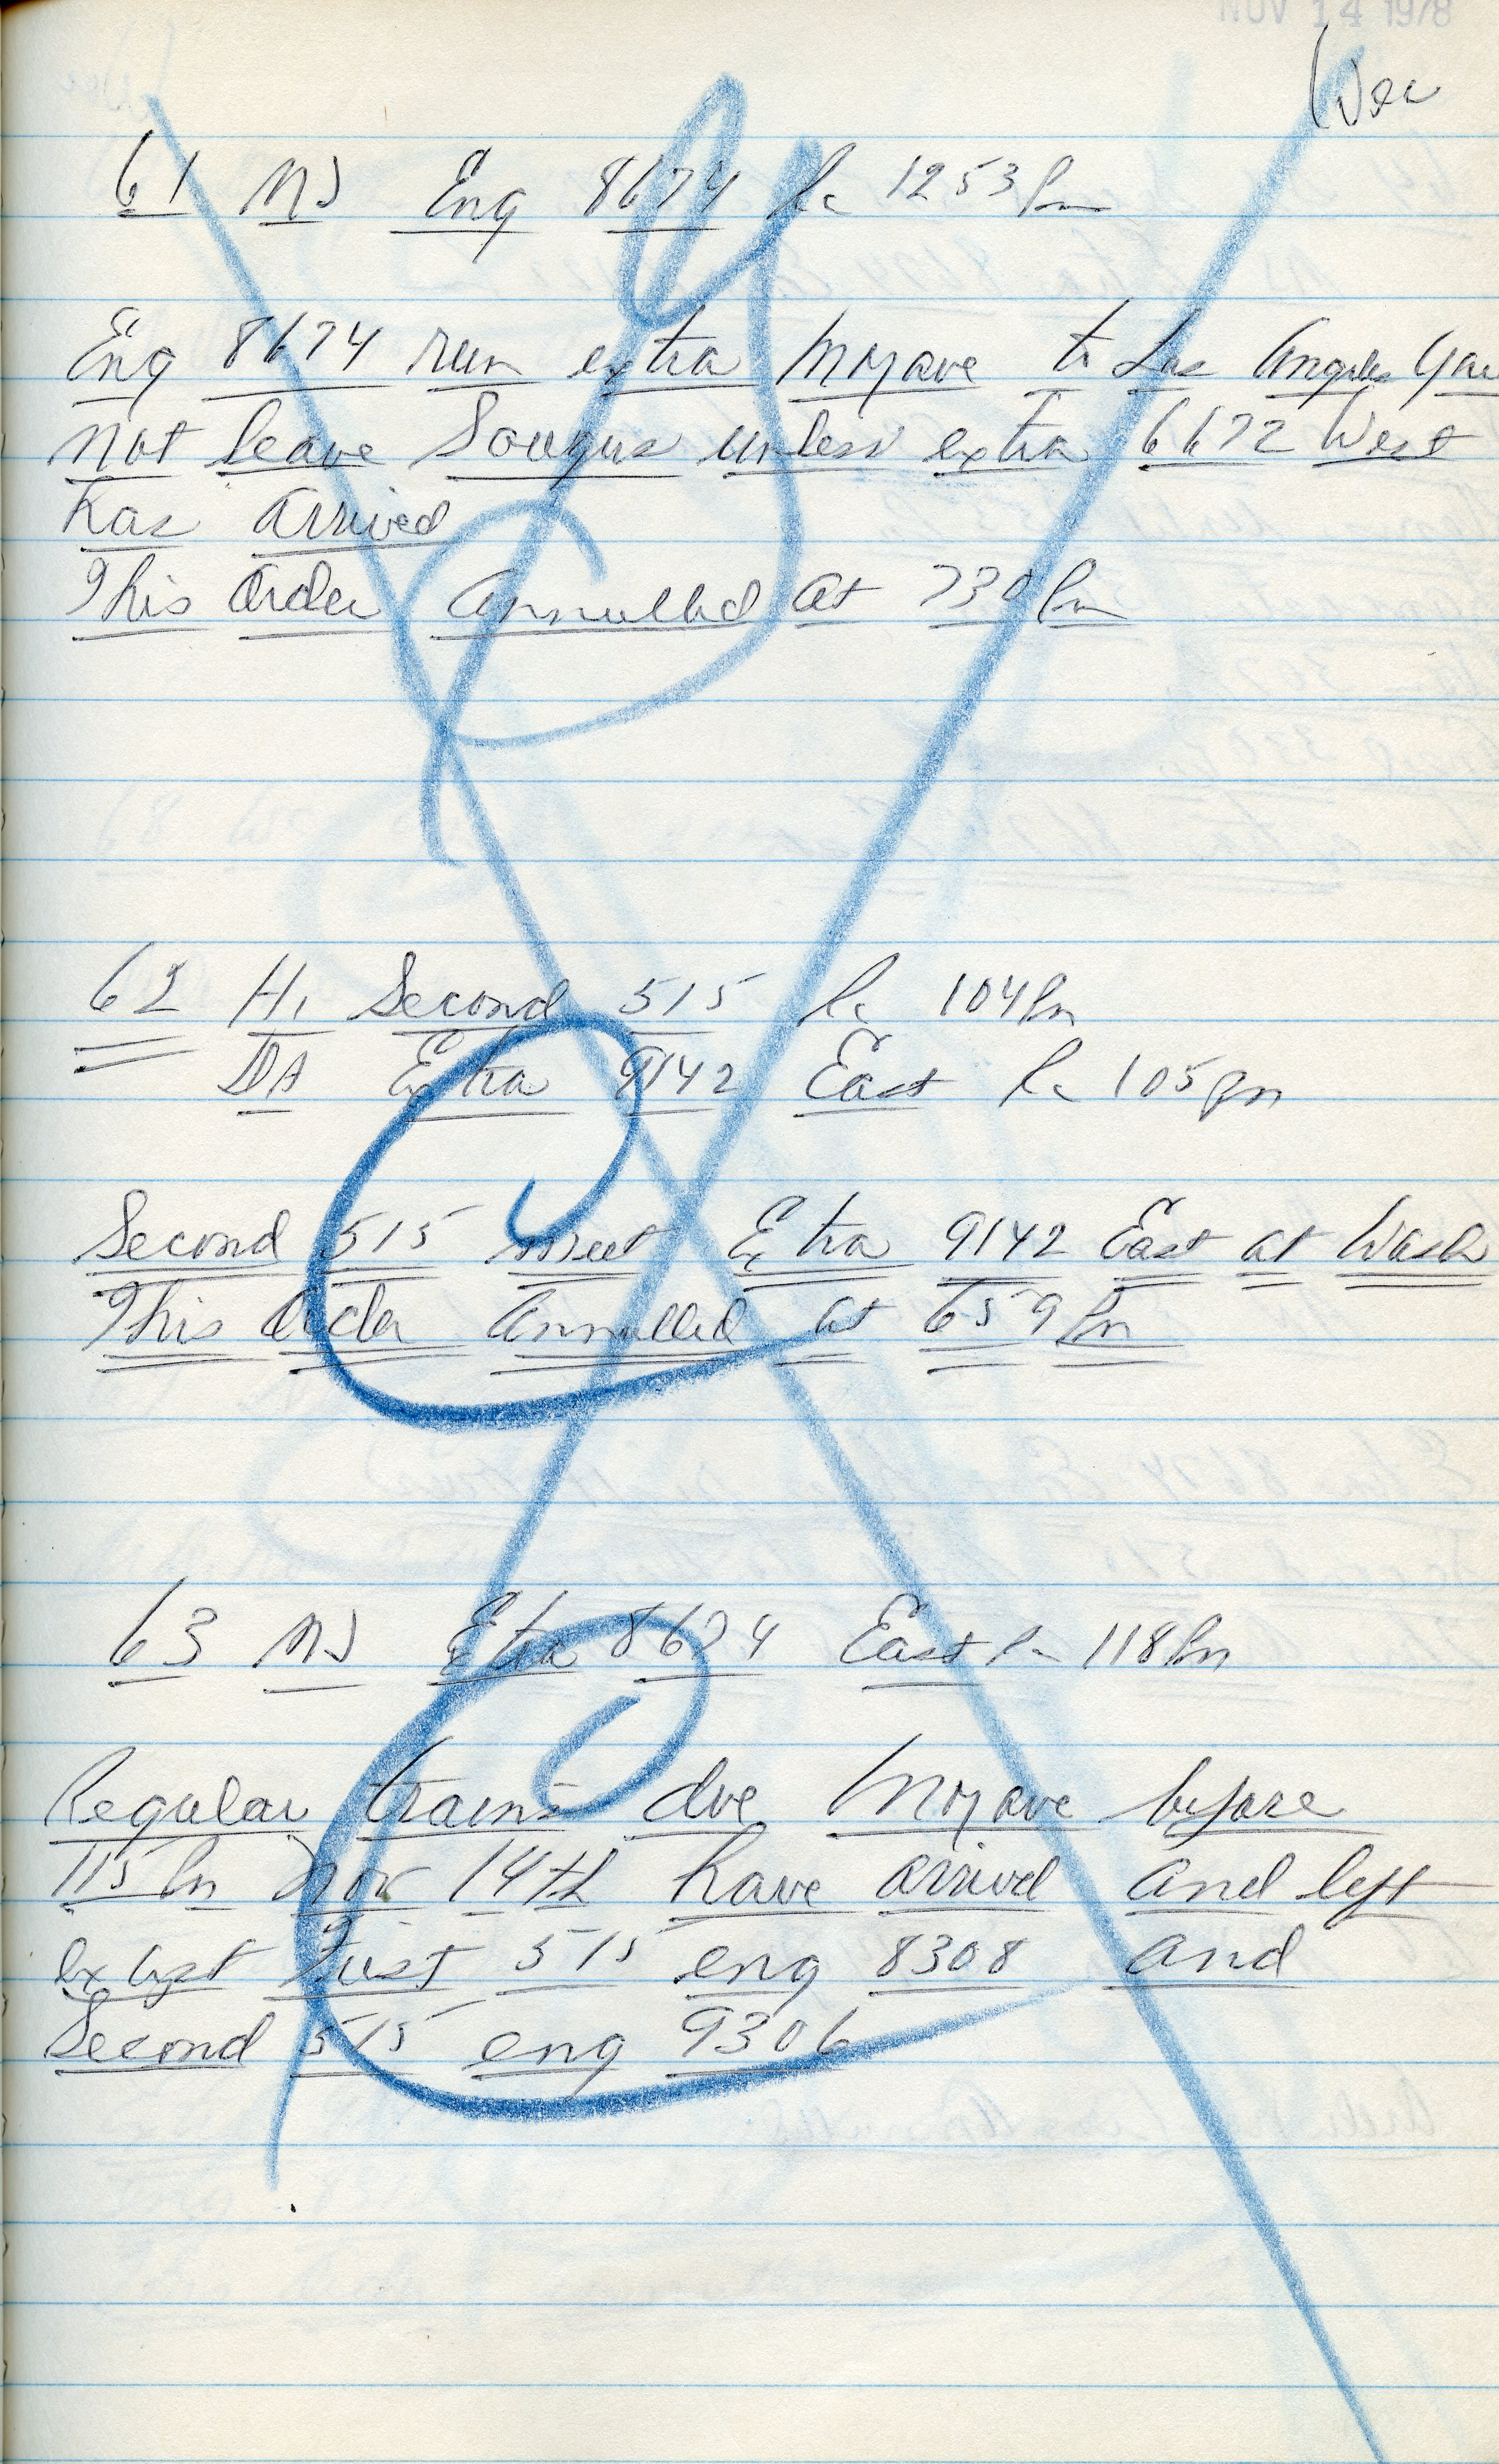 NOV 14 1978
61 MJ Eng 8674 1253 Pm
Eng 8674 run extra Mojave to Los Angeles Yar
not leave Saugus unless extra 6672 West
has arrived
This order annulled at 730 Pm
62 Hi Second 515 104 Pm
DA Extra 9142 East 105 pm
Second 515 meet Extra 9142 East at Wash
This order annulled at 659 Pm
63 MJ Extra 8674 East 118 Pm
Regular trains due Mojave before
115 Pm Nov 14th have arrived and left
except First 515 eng 8308 and
Second 515 eng 9306